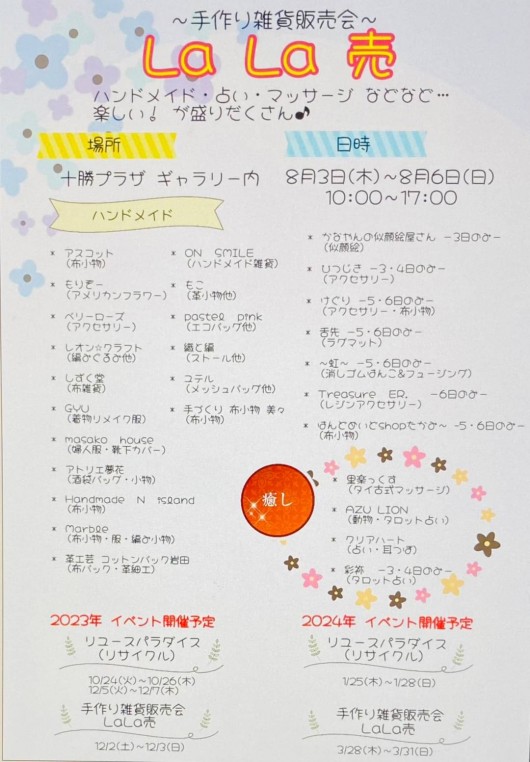 ～手作り雑貨販売会～
La La 売
ハンドメイド・占い・マッサージ などなど…
楽しい♩ が盛りだくさん♪
場所
十勝プラザ ギャラリー内
日時
8月3日(木)～8月6日(日)
10:00～17:00
ハンドメイド
* アスコット
(布小物)
* もりぞー
(アメリカンフラワー)
* ベリーローズ
(アクセサリー)
* レオン☆クラフト
(編みぐるみ他)
* しずく堂
(布雑貨)
* GYU
(着物リメイク服)
* masako house
(婦人服・靴下カバー)
* アトリエ夢花
(酒袋バッグ・小物)
* Handmade N island
(布小物)
* Marble
(布小物・服・編み小物)
* 革工芸 コットンパック岩田
(布バック・革細工)
* ON SMILE
(ハンドメイド雑貨)
* もこ
(革小物他)
* pastel pink
(エコバッグ他)
* 織と編
(ストール他)
* ユテル
(メッシュバッグ他)
* 手づくり 布小物 美々
(布小物)
* かなやんの似顔絵屋さん －3日のみ－
(似顔絵)
* ひつじさ －3・4日のみ－
(アクセサリー)
* けぐり －5・6日のみ－
(アクセサリー・布小物)
* 舌先 －5・6日のみ－
(ラグマット)
* ～虹～ －5・6日のみ－
(消しゴムはんこ&フュージング)
* Treasure ER. －6日のみ－
(レジンアクセサリー)
* はんどめいどshopたかみ～ －5・6日のみ－
(布小物)
癒し
* 里楽っくす
(タイ古式マッサージ)
* AZU LION
(動物・タロット占い)
* クリアハート
(占い・耳つぼ)
* 彩袮 －3・4日のみ－
(タロット占い)
2023年 イベント開催予定
リユースパラダイス
(リサイクル)
10/24(火)～10/26(木)
12/5(火)～12/7(木)
手作り雑貨販売会
LaLa売
12/2(土)～12/3(日)
2024年 イベント開催予定
リユースパラダイス
(リサイクル)
1/25(木)～1/28(日)
手作り雑貨販売会
LaLa売
3/28(木)～3/31(日)